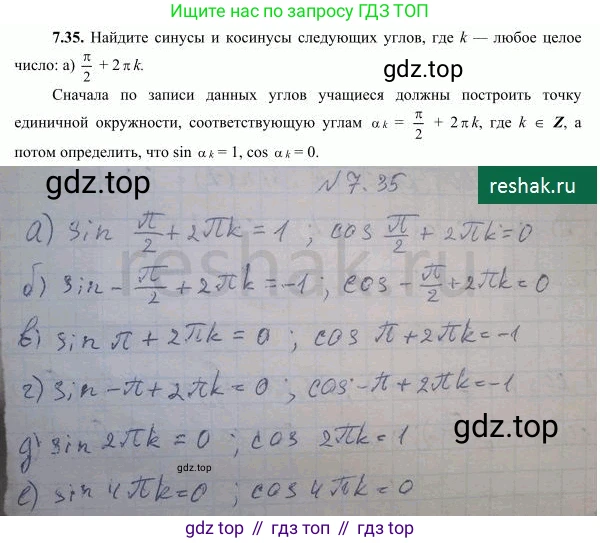 Ищите нас по запросу ГДЗ ТОП
7.35. Найдите синусы и косинусы следующих углов, где k — любое целое
число: а) π/2 + 2πk.
Сначала по записи данных углов учащиеся должны построить точку
единичной окружности, соответствующую углам αk = π/2 + 2πk, где k ∈ Z, а
потом определить, что sin αk = 1, cos αk = 0.
gdz.top
№ 7.35
gdz.top
reshak.ru
а) sin π/2 + 2πk = 1 ; cos π/2 + 2πk = 0
б) sin - π/2 + 2πk = -1 ; cos - π/2 + 2πk = 0
в) sin π + 2πk = 0 ; cos π + 2πk = -1
г) sin -π + 2πk = 0 ; cos -π + 2πk = -1
д) sin 2πk = 0 ; cos 2πk = 1
gdz.top
е) sin 4πk = 0 ; cos 4πk = 0
gdz top // гдз топ // gdz.top
reshak.ru